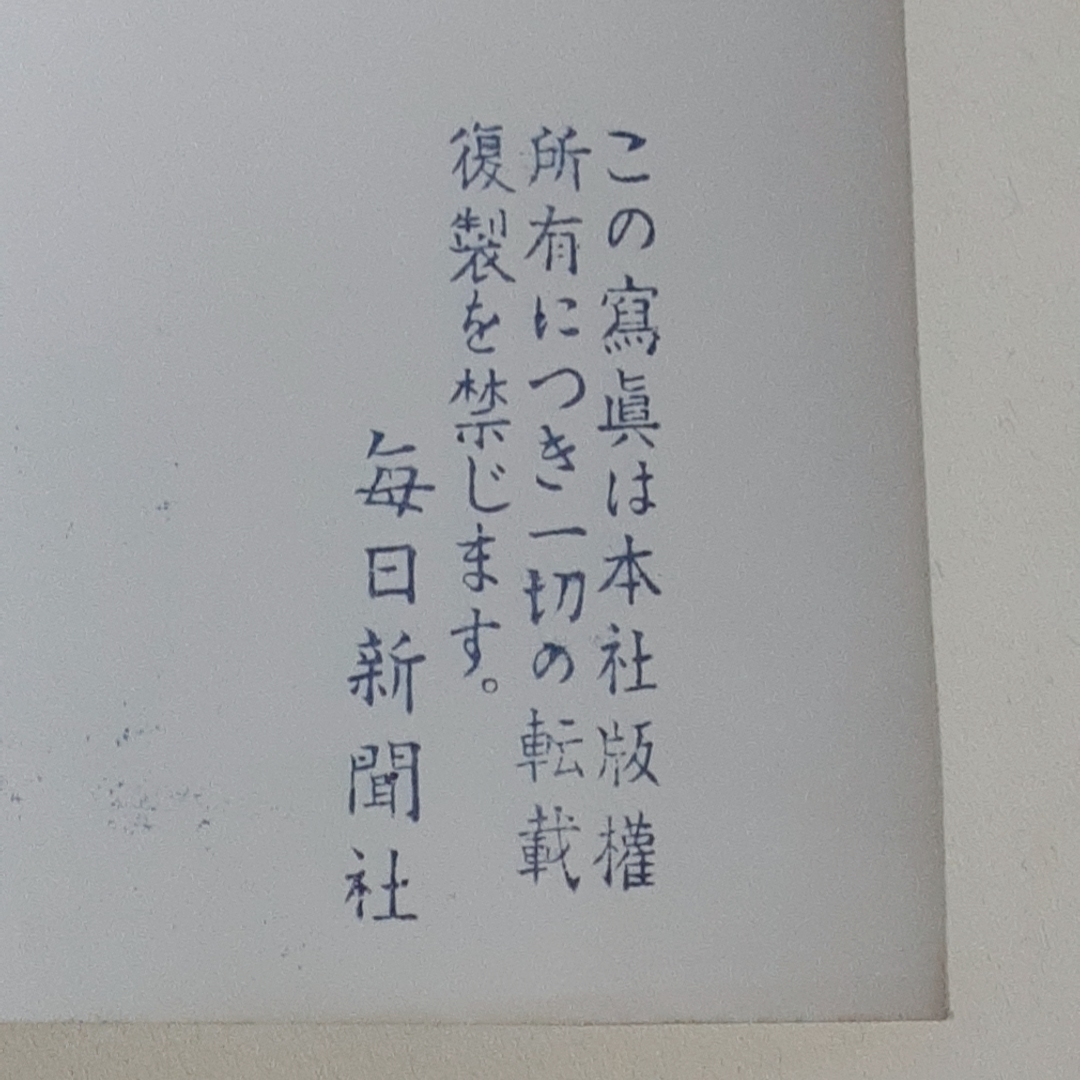 この寫眞は本社版權
所有につき一切の転載
復製を禁じます。
毎日新聞社